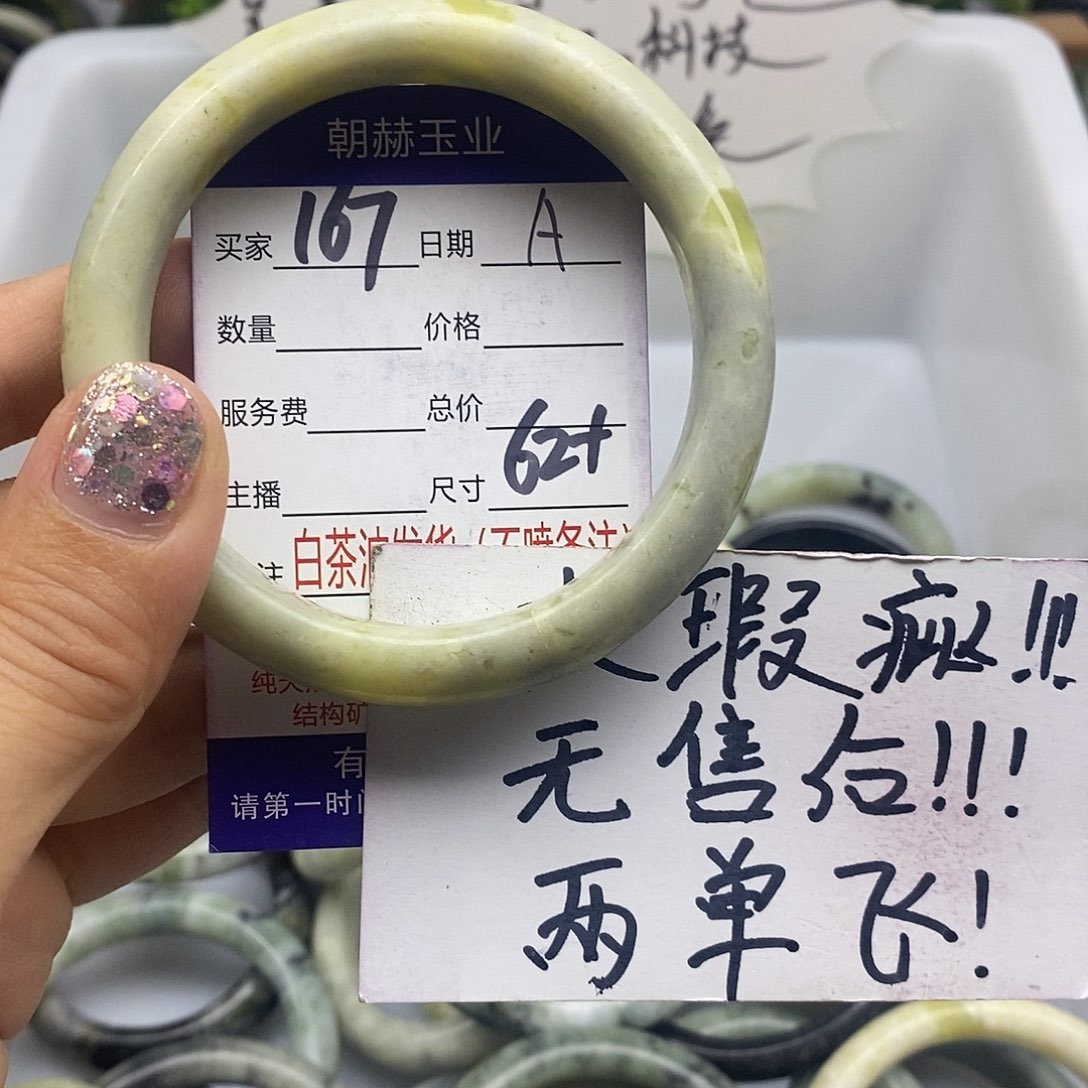 科技
朝赫玉业
买家 167 日期 A
数量 价格
服务费 总价
主播 尺寸 62+
注 白茶油发货（不喷备注）
纯天
结构矿
有
请第一时间
瑕疵!!!
无售后!!!
两单飞!